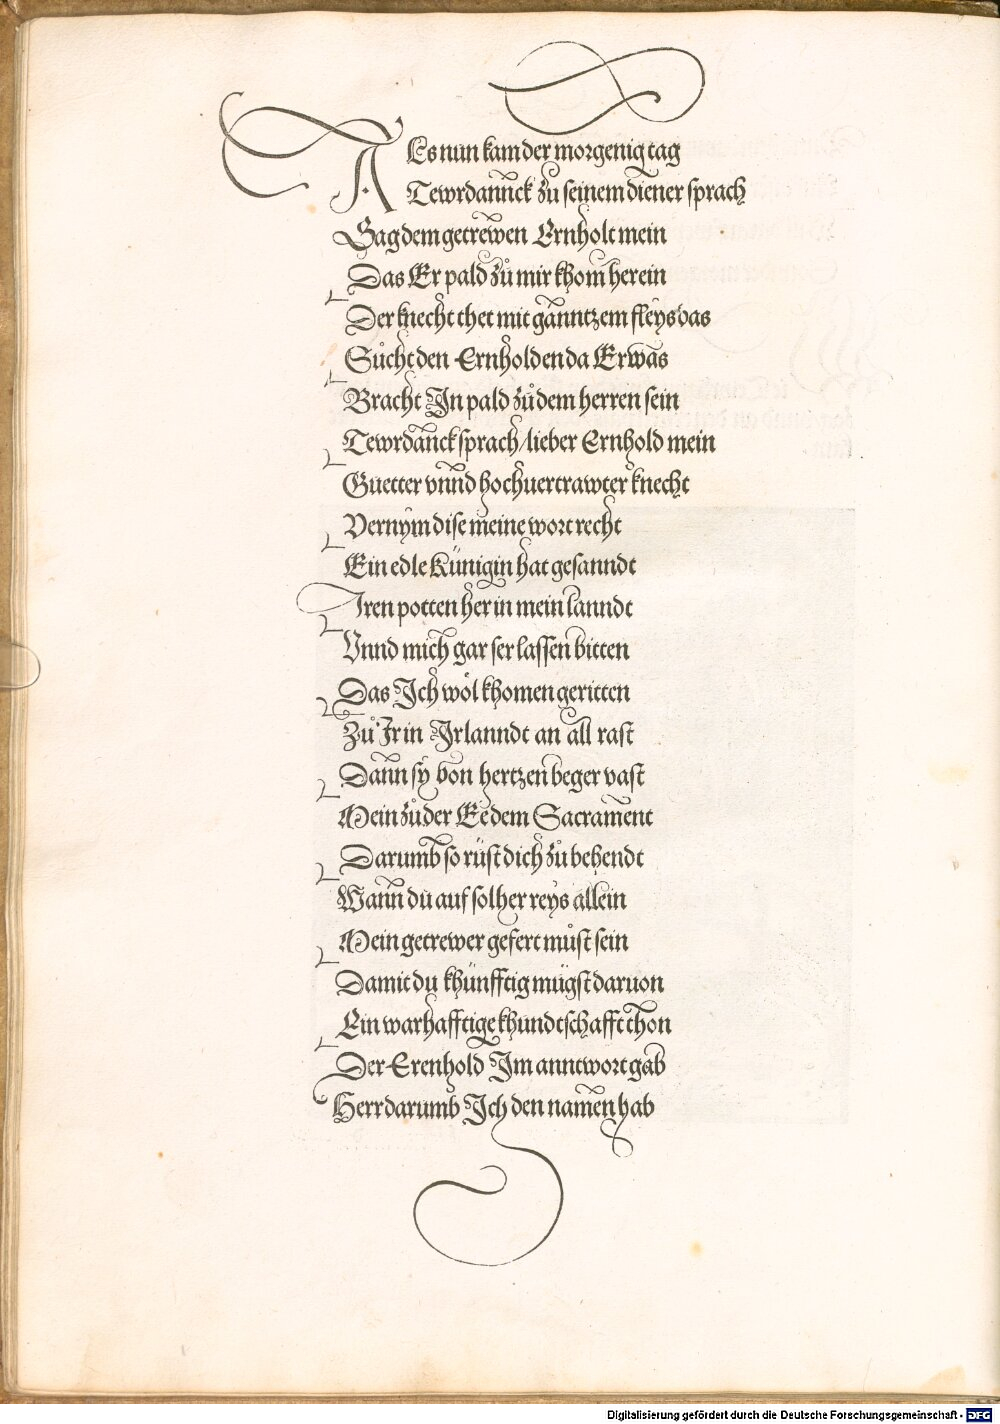 ALs nun kam der morgenig tag
Tewrdannck zu seinem diener sprach
Sag dem getrewen Ernholt mein
Das Er pald zů mir khom herein
Der knecht thet mit ganntzem fleys das
Sůcht den Ernholden da Er was
Bracht In pald zů dem herren sein
Tewrdanck sprach / lieber Ernhold mein
Guetter vnnd hochuertrawter knecht
Vernym dise meine wort recht
Ein edle Künigin hat gesanndt
Iren potten her in mein lanndt
Vnnd mich gar ser lassen bitten
Das Ich wöl khomen geritten
Zů Ir in Irlanndt an all rast
Dann sy von hertzen beger vast
Mein zů der Ee dem Sacrament
Darumb so rüst dich zů behendt
Wann du auf solher reys allein
Mein getrewer gefert můst sein
Damit du khünfftig mügst daruon
Ein warhafftige khundtschafft thon
Der Erenhold Im anntwort gab
Herr darumb Ich den namen hab
Digitalisierung gefördert durch die Deutsche Forschungsgemeinschaft - DFG